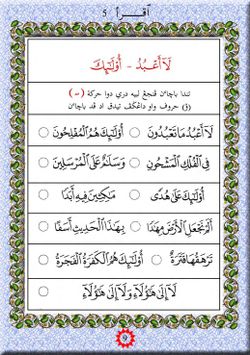 اقرأ ٥
لَآ أَعْبُدُ - أُولَٰٓئِكَ
تندا باچاءن ڤنجڠ لبيه دري دوا حركة (~)
(ؤ) حروف واو داڠكڤ تيدق اد ڤد باچاءن
لَآ أَعْبُدُ مَا تَعْبُدُونَ ○ أُولَٰٓئِكَ هُمُ الْمُفْلِحُونَ ○
فِي الْفُلْكِ الْمَشْحُونِ ○ وَسَلَٰمٌ عَلَى الْمُرْسَلِينَ ○
أُولَٰٓئِكَ عَلَىٰ هُدًى ○ مَٰكِثِينَ فِيهِ أَبَدًا ○
أَلَمْ نَجْعَلِ الْأَرْضَ مِهَٰدًا ○ بِهَٰذَا الْحَدِيثِ أَسَفًا ○
تَرْهَقُهَا قَتَرَةٌ ○ أُولَٰٓئِكَ هُمُ الْكَفَرَةُ الْفَجَرَةُ ○
لَآ إِلَىٰ هَٰٓؤُلَآءِ وَلَآ إِلَىٰ هَٰٓؤُلَآءِ ○
9